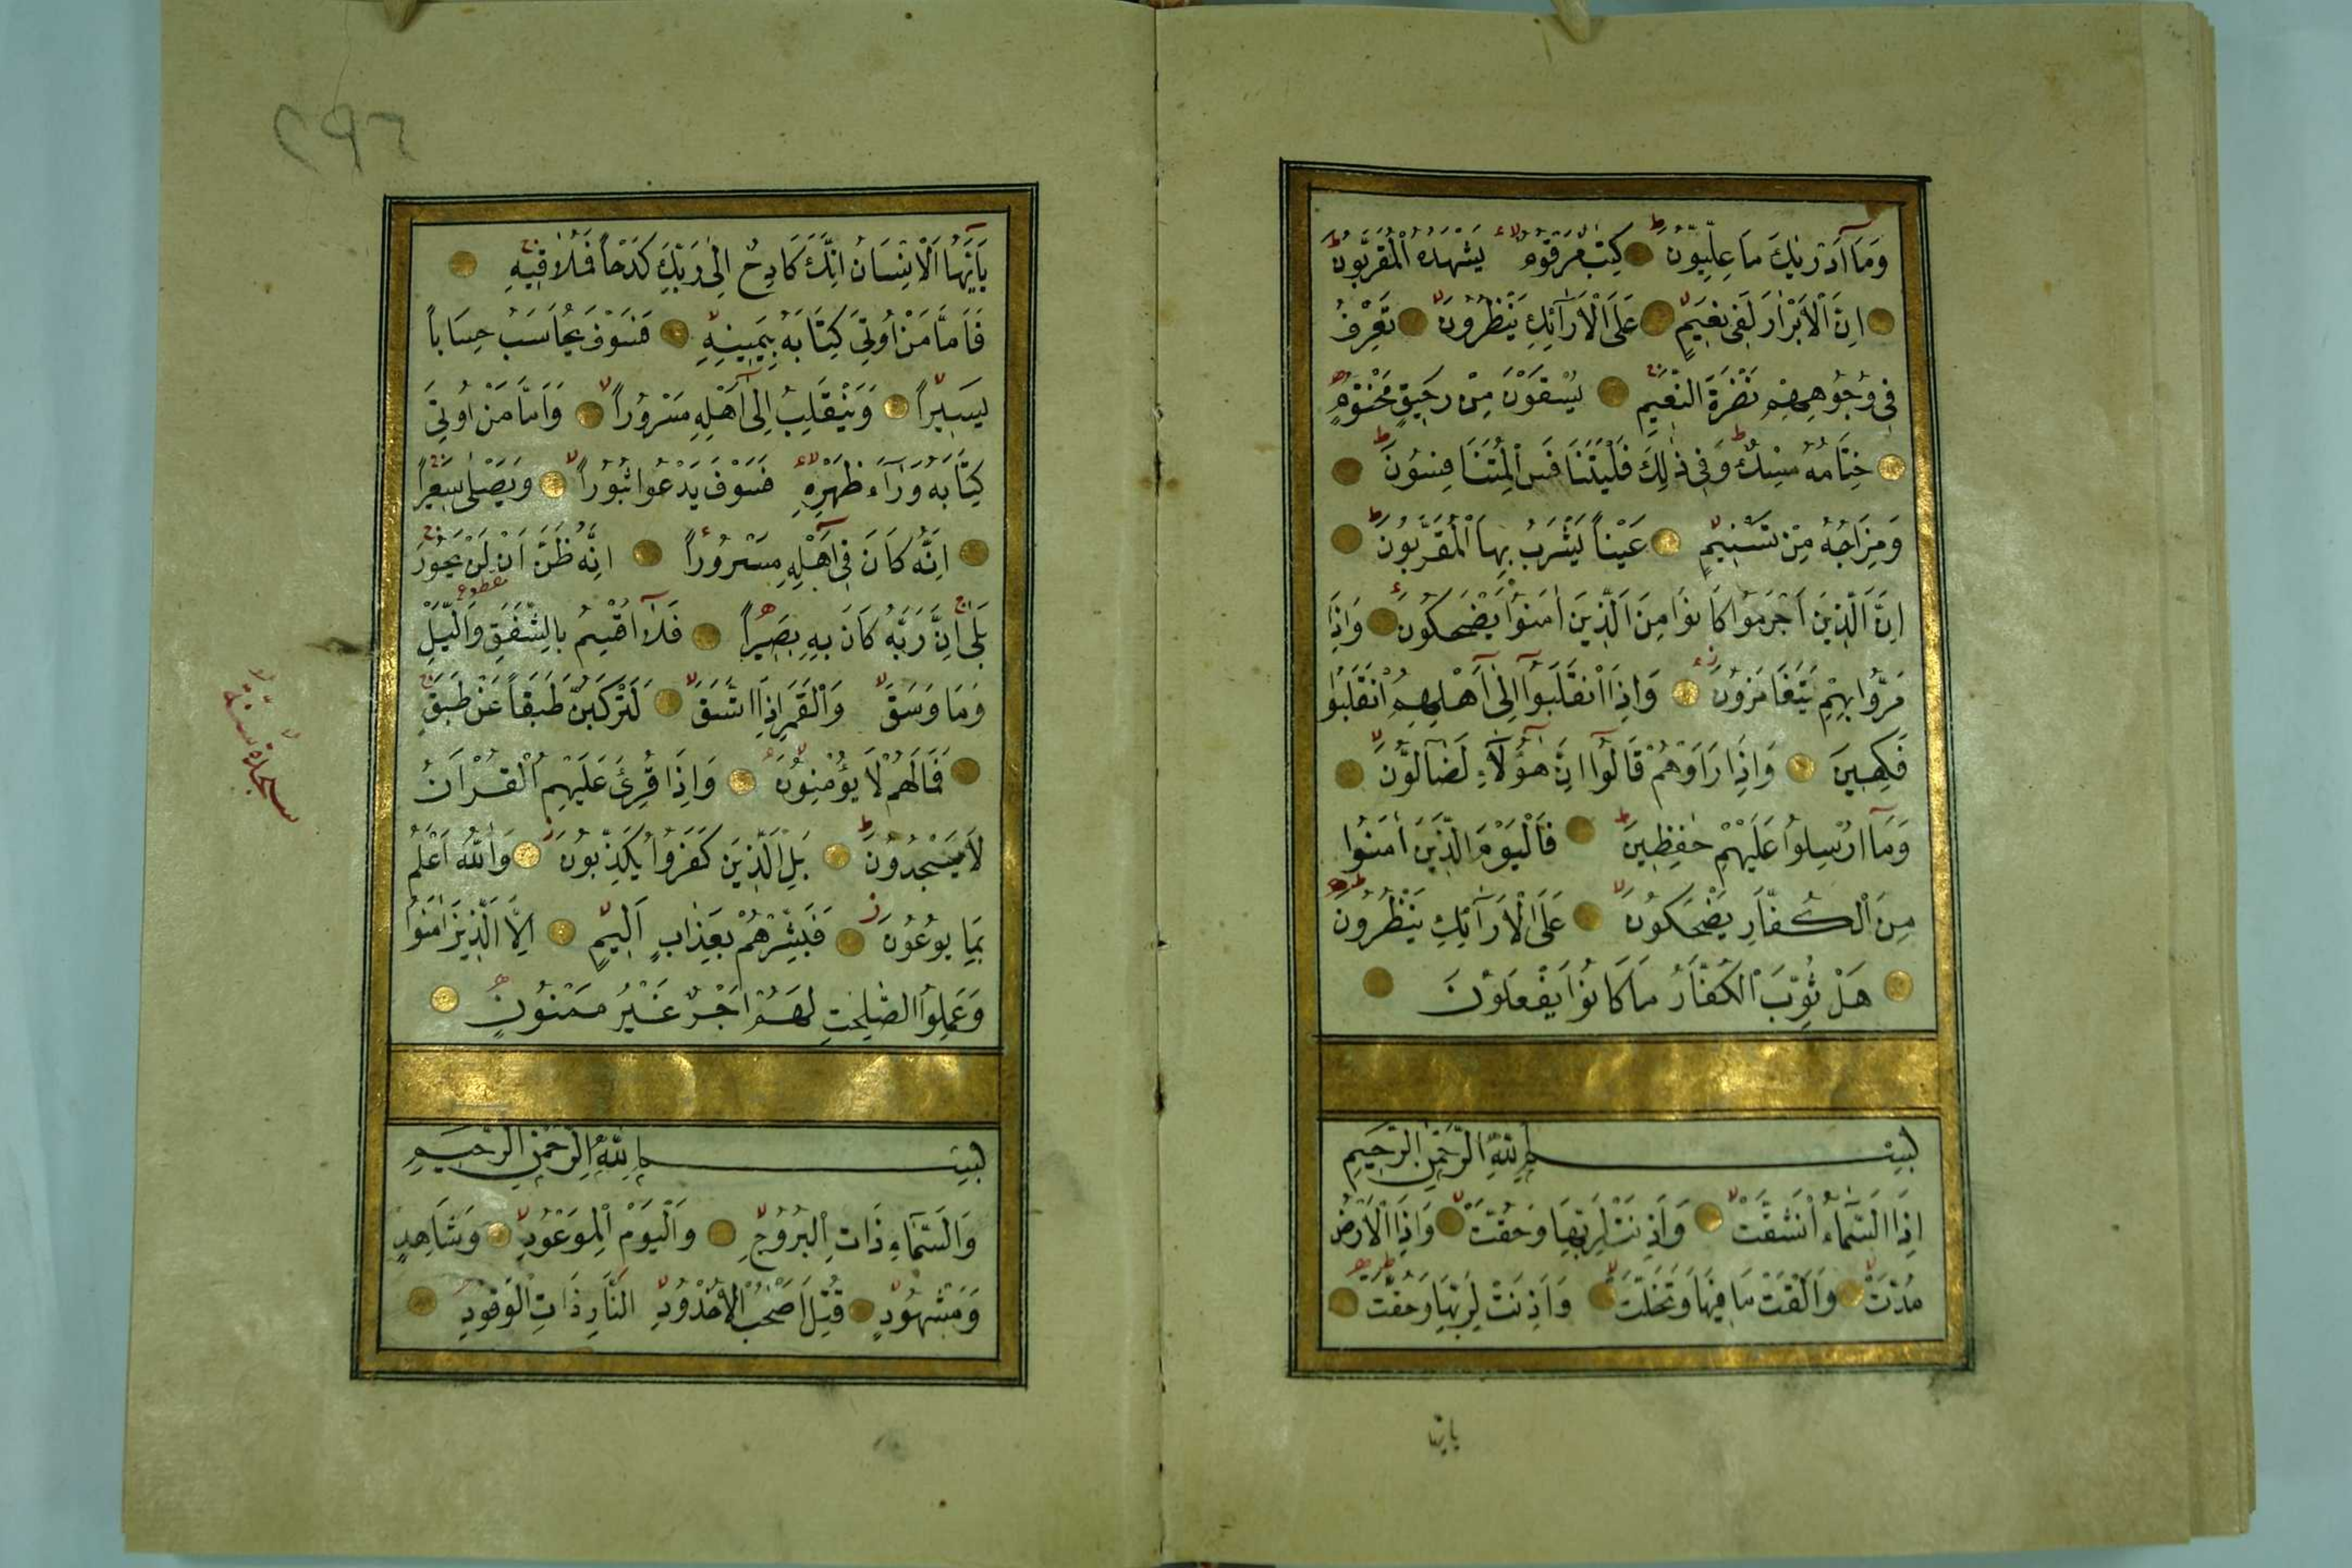 وَمَآ اَدْرٰيكَ مَا عِلِّيُّونَ كِتٰبٌ مَرْقُومٌ يَشْهَدُهُ الْمُقَرَّبُونَ
اِنَّ الْاَبْرَارَ لَفِى نَعِيمٍ عَلَى الْاَرَآئِكِ يَنْظُرُونَ تَعْرِفُ
فِى وُجُوهِهِمْ نَضْرَةَ النَّعِيمِ يُسْقَوْنَ مِنْ رَحِيقٍ مَخْتُومٍ
خِتَامُهُ مِسْكٌ وَفِى ذٰلِكَ فَلْيَتَنَافَسِ الْمُتَنَافِسُونَ
وَمِزَاجُهُ مِنْ تَسْنِيمٍ عَيْناً يَشْرَبُ بِهَا الْمُقَرَّبُونَ
اِنَّ الَّذِينَ اَجْرَمُوا كَانُوا مِنَ الَّذِينَ اٰمَنُوا يَضْحَكُونَ وَاِذَا
مَرُّوا بِهِمْ يَتَغَامَزُونَ وَاِذَا انْقَلَبُوٓا اِلٰٓى اَهْلِهِمُ انْقَلَبُوا
فَكِهِينَ وَاِذَا رَاَوْهُمْ قَالُوٓا اِنَّ هٰٓؤُلَآءِ لَضَآلُّونَ
وَمَآ اُرْسِلُوا عَلَيْهِمْ حٰفِظِينَ فَالْيَوْمَ الَّذِينَ اٰمَنُوا
مِنَ الْكُفَّارِ يَضْحَكُونَ عَلَى الْاَرَآئِكِ يَنْظُرُونَ
هَلْ ثُوِّبَ الْكُفَّارُ مَا كَانُوا يَفْعَلُونَ
بِسْمِ اللّٰهِ الرَّحْمٰنِ الرَّحِيمِ
اِذَا السَّمَآءُ انْشَقَّتْ وَاَذِنَتْ لِرَبِّهَا وَحُقَّتْ وَاِذَا الْاَرْضُ
مُدَّتْ وَاَلْقَتْ مَا فِيهَا وَتَخَلَّتْ وَاَذِنَتْ لِرَبِّهَا وَحُقَّتْ
يٓا اَيُّهَا
٢٩٦
يَآ اَيُّهَا الْاِنْسَانُ اِنَّكَ كَادِحٌ اِلٰى رَبِّكَ كَدْحاً فَمُلَاقِيهِ
فَاَمَّا مَنْ اُوتِىَ كِتَابَهُ بِيَمِينِهِ فَسَوْفَ يُحَاسَبُ حِسَاباً
يَسِيراً وَيَنْقَلِبُ اِلٰٓى اَهْلِهِ مَسْرُوراً وَاَمَّا مَنْ اُوتِىَ
كِتَابَهُ وَرَآءَ ظَهْرِهِ فَسَوْفَ يَدْعُوا ثُبُوراً وَيَصْلٰى سَعِيراً
اِنَّهُ كَانَ فِىٓ اَهْلِهِ مَسْرُوراً اِنَّهُ ظَنَّ اَنْ لَنْ يَحُورَ
بَلٰى اِنَّ رَبَّهُ كَانَ بِهِ بَصِيراً فَلَآ اُقْسِمُ بِالشَّفَقِ وَالَّيْلِ
وَمَا وَسَقَ وَالْقَمَرِ اِذَا اتَّسَقَ لَتَرْكَبُنَّ طَبَقاً عَنْ طَبَقٍ
فَمَا لَهُمْ لَا يُؤْمِنُونَ وَاِذَا قُرِئَ عَلَيْهِمُ الْقُرْاٰنُ
لَا يَسْجُدُونَ بَلِ الَّذِينَ كَفَرُوا يُكَذِّبُونَ وَاللّٰهُ اَعْلَمُ
بِمَا يُوعُونَ فَبَشِّرْهُمْ بِعَذَابٍ اَلِيمٍ اِلَّا الَّذِينَ اٰمَنُوا
وَعَمِلُوا الصّٰلِحٰتِ لَهُمْ اَجْرٌ غَيْرُ مَمْنُونٍ
بِسْمِ اللّٰهِ الرَّحْمٰنِ الرَّحِيمِ
وَالسَّمَآءِ ذَاتِ الْبُرُوجِ وَالْيَوْمِ الْمَوْعُودِ وَشَاهِدٍ
وَمَشْهُودٍ قُتِلَ اَصْحٰبُ الْاُخْدُودِ النَّارِ ذَاتِ الْوَقُودِ